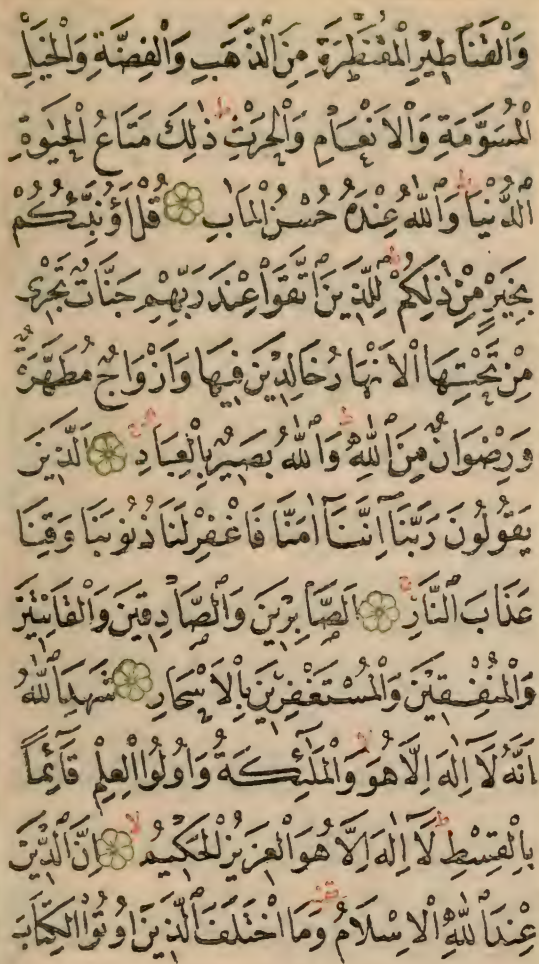 وَالْقَنَاطِيرِ الْمُقَنْطَرَةِ مِنَ الذَّهَبِ وَالْفِضَّةِ وَالْخَيْلِ
الْمُسَوَّمَةِ وَالْاَنْعَامِ وَالْحَرْثِ ط ذٰلِكَ مَتَاعُ الْحَيٰوةِ
الدُّنْيَا ط وَاللّٰهُ عِنْدَهُ حُسْنُ الْمَاٰبِ قُلْ اَؤُنَبِّئُكُمْ
بِخَيْرٍ مِنْ ذٰلِكُمْ ط لِلَّذِينَ اتَّقَوْا عِنْدَ رَبِّهِمْ جَنَّاتٌ تَجْرِى
مِنْ تَحْتِهَا الْاَنْهَارُ خَالِدِينَ فِيهَا وَاَزْوَاجٌ مُطَهَّرَةٌ
وَرِضْوَانٌ مِنَ اللّٰهِ ط وَاللّٰهُ بَصِيرٌ بِالْعِبَادِ ج اَلَّذِينَ
يَقُولُونَ رَبَّنَا اِنَّنَا اٰمَنَّا فَاغْفِرْ لَنَا ذُنُوبَنَا وَقِنَا
عَذَابَ النَّارِ ج اَلصَّابِرِينَ وَالصَّادِقِينَ وَالْقَانِتِينَ
وَالْمُنْفِقِينَ وَالْمُسْتَغْفِرِينَ بِالْاَسْحَارِ شَهِدَ اللّٰهُ
اَنَّهُ لَا اِلٰهَ اِلَّا هُوَ لا وَالْمَلٰٓئِكَةُ وَاُولُوا الْعِلْمِ قَٓائِمًا
بِالْقِسْطِ ط لَا اِلٰهَ اِلَّا هُوَ الْعَزِيزُ الْحَكِيمُ لا اِنَّ الدِّينَ
عِنْدَ اللّٰهِ الْاِسْلَامُ قف وَمَا اخْتَلَفَ الَّذِينَ اُوتُوا الْكِتَابَ